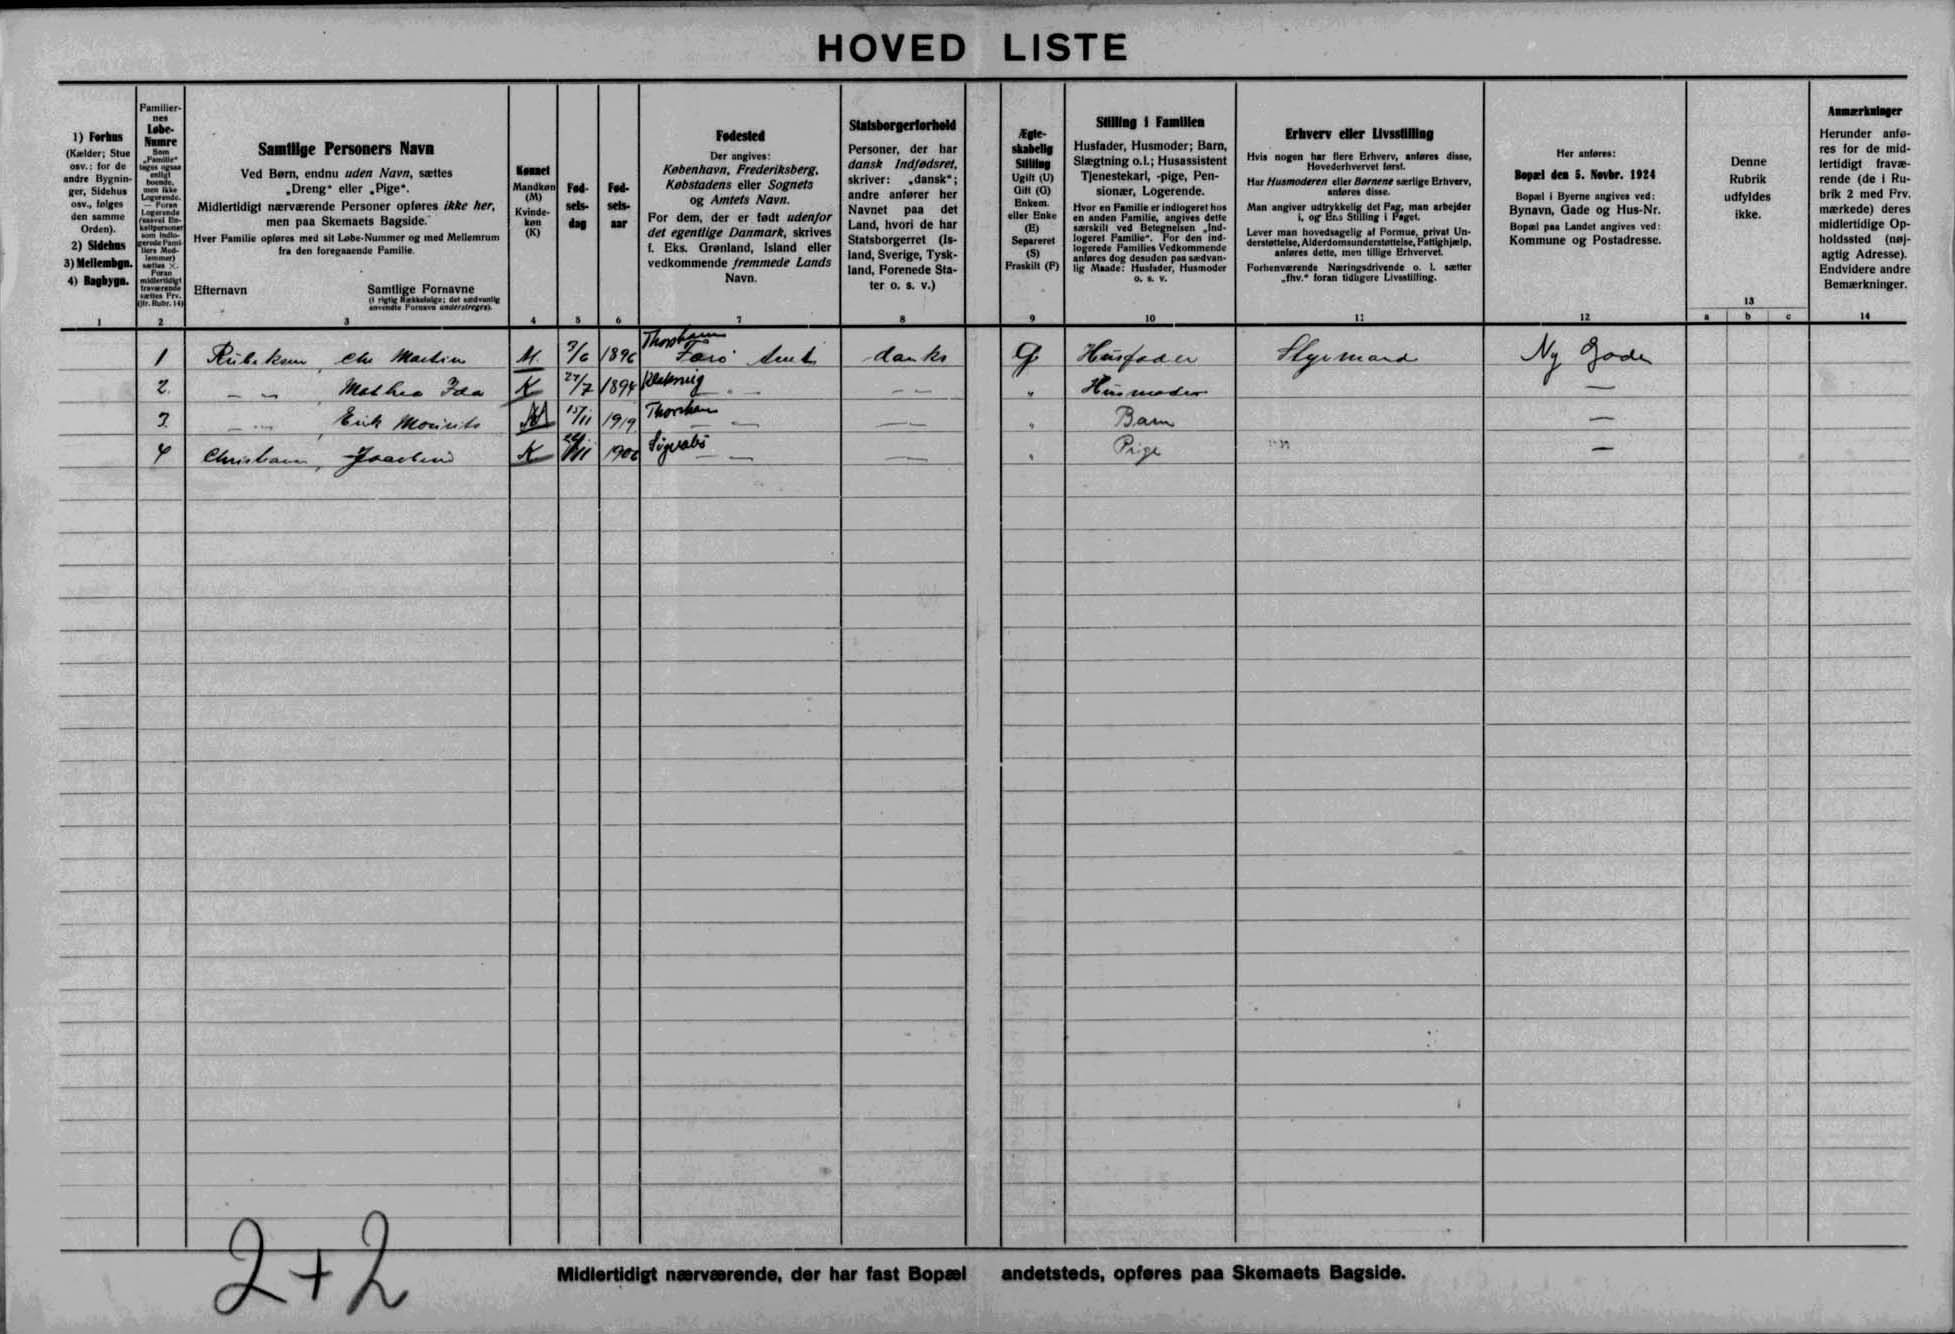 HOVED LISTE
1) Forhus
(Kælder; Stue
osv.: for de
andre Bygnin-
ger, Sidehus
osv., følges
den samme
Orden).
2) Sidehus
3) Mellembgn.
4) Bagbygn.
1
Familier-
nes
Løbe-
Numre
Som
„Familie"
tages ogsaa
enligt
boende,
men ikke
Logerende.
— Foran
Logerende
(saavel En-
keltpersoner
som indlo-
gerede Fami-
liers Med-
lemmer)
sættes ×.
Foran
midlertidigt
fraværende
sættes Frv.
(jfr. Rubr. 14)
2
Samtlige Personers Navn
Ved Børn, endnu uden Navn, sættes
„Dreng" eller „Pige".
Midlertidigt nærværende Personer opføres ikke her,
men paa Skemaets Bagside.
Hver Familie opføres med sit Løbe-Nummer og med Mellemrum
fra den foregaaende Familie.
Efternavn
Samtlige Fornavne
(i rigtig Rækkefølge; det sædvanlig
anvendte Fornavn understreges).
3
Kønnet
Mandkøn
(M)
Kvinde-
køn
(K)
4
Fød-
sels-
dag
5
Fød-
sels-
aar
6
Fødested
Der angives:
København, Frederiksberg,
Købstadens eller Sognets
og Amtets Navn.
For dem, der er født udenfor
det egentlige Danmark, skrives
f. Eks. Grønland, Island eller
vedkommende fremmede Lands
Navn.
7
Statsborgerforhold
Personer, der har
dansk Indfødsret,
skriver: „dansk";
andre anfører her
Navnet paa det
Land, hvori de har
Statsborgerret (Is-
land, Sverige, Tysk-
land, Forenede Sta-
ter o. s. v.)
8
Ægte-
skabelig
Stilling
Ugift (U)
Gift (G)
Enkem.
eller Enke
(E)
Separeret
(S)
Fraskilt (F)
9
Stilling i Familien
Husfader, Husmoder; Barn,
Slægtning o.l.; Husassistent
Tjenestekarl, -pige, Pen-
sionær, Logerende.
Hvor en Familie er indlogeret hos
en anden Familie, angives dette
særskilt ved Betegnelsen „Ind-
logeret Familie". For den ind-
logerede Families Vedkommende
anføres dog desuden paa sædvan-
lig Maade: Husfader, Husmoder
o. s. v.
10
Erhverv eller Livsstilling
Hvis nogen har flere Erhverv, anføres disse,
Hovederhvervet først.
Har Husmoderen eller Børnene særlige Erhverv,
anføres disse.
Man angiver udtrykkelig det Fag, man arbejder
i, og Ens Stilling i Faget.
Lever man hovedsagelig af Formue, privat Un-
derstøttelse, Alderdomsunderstøttelse, Fattighjælp,
anføres dette, men tillige Erhvervet.
Forhenværende Næringsdrivende o. l. sætter
„fhv." foran tidligere Livsstilling.
11
Her anføres:
Bopæl den 5. Novbr. 1924
Bopæl i Byerne angives ved:
Bynavn, Gade og Hus-Nr.
Bopæl paa Landet angives ved:
Kommune og Postadresse.
12
Denne
Rubrik
udfyldes
ikke.
13
a b c
Anmærkninger
Herunder anfø-
res for de mid-
lertidigt fravæ-
rende (de i Ru-
brik 2 med Frv.
mærkede) deres
midlertidige Op-
holdssted (nøj-
agtig Adresse).
Endvidere andre
Bemærkninger.
14
1 Rubeksen, Chr Martin M 7/6 1896 Thorshavn Færø Amt dansk G Husfader Styrmand Ny Gade
2. — — , Mathea Ida K 27/7 1894 — — — " Husmoder —
3. — — , Erik Mourits M 15/11 1919 Thorshavn — — — " Barn —
4 Christiansen, K 1906 — — — " Pige —
2+2
Midlertidigt nærværende, der har fast Bopæl andetsteds, opføres paa Skemaets Bagside.